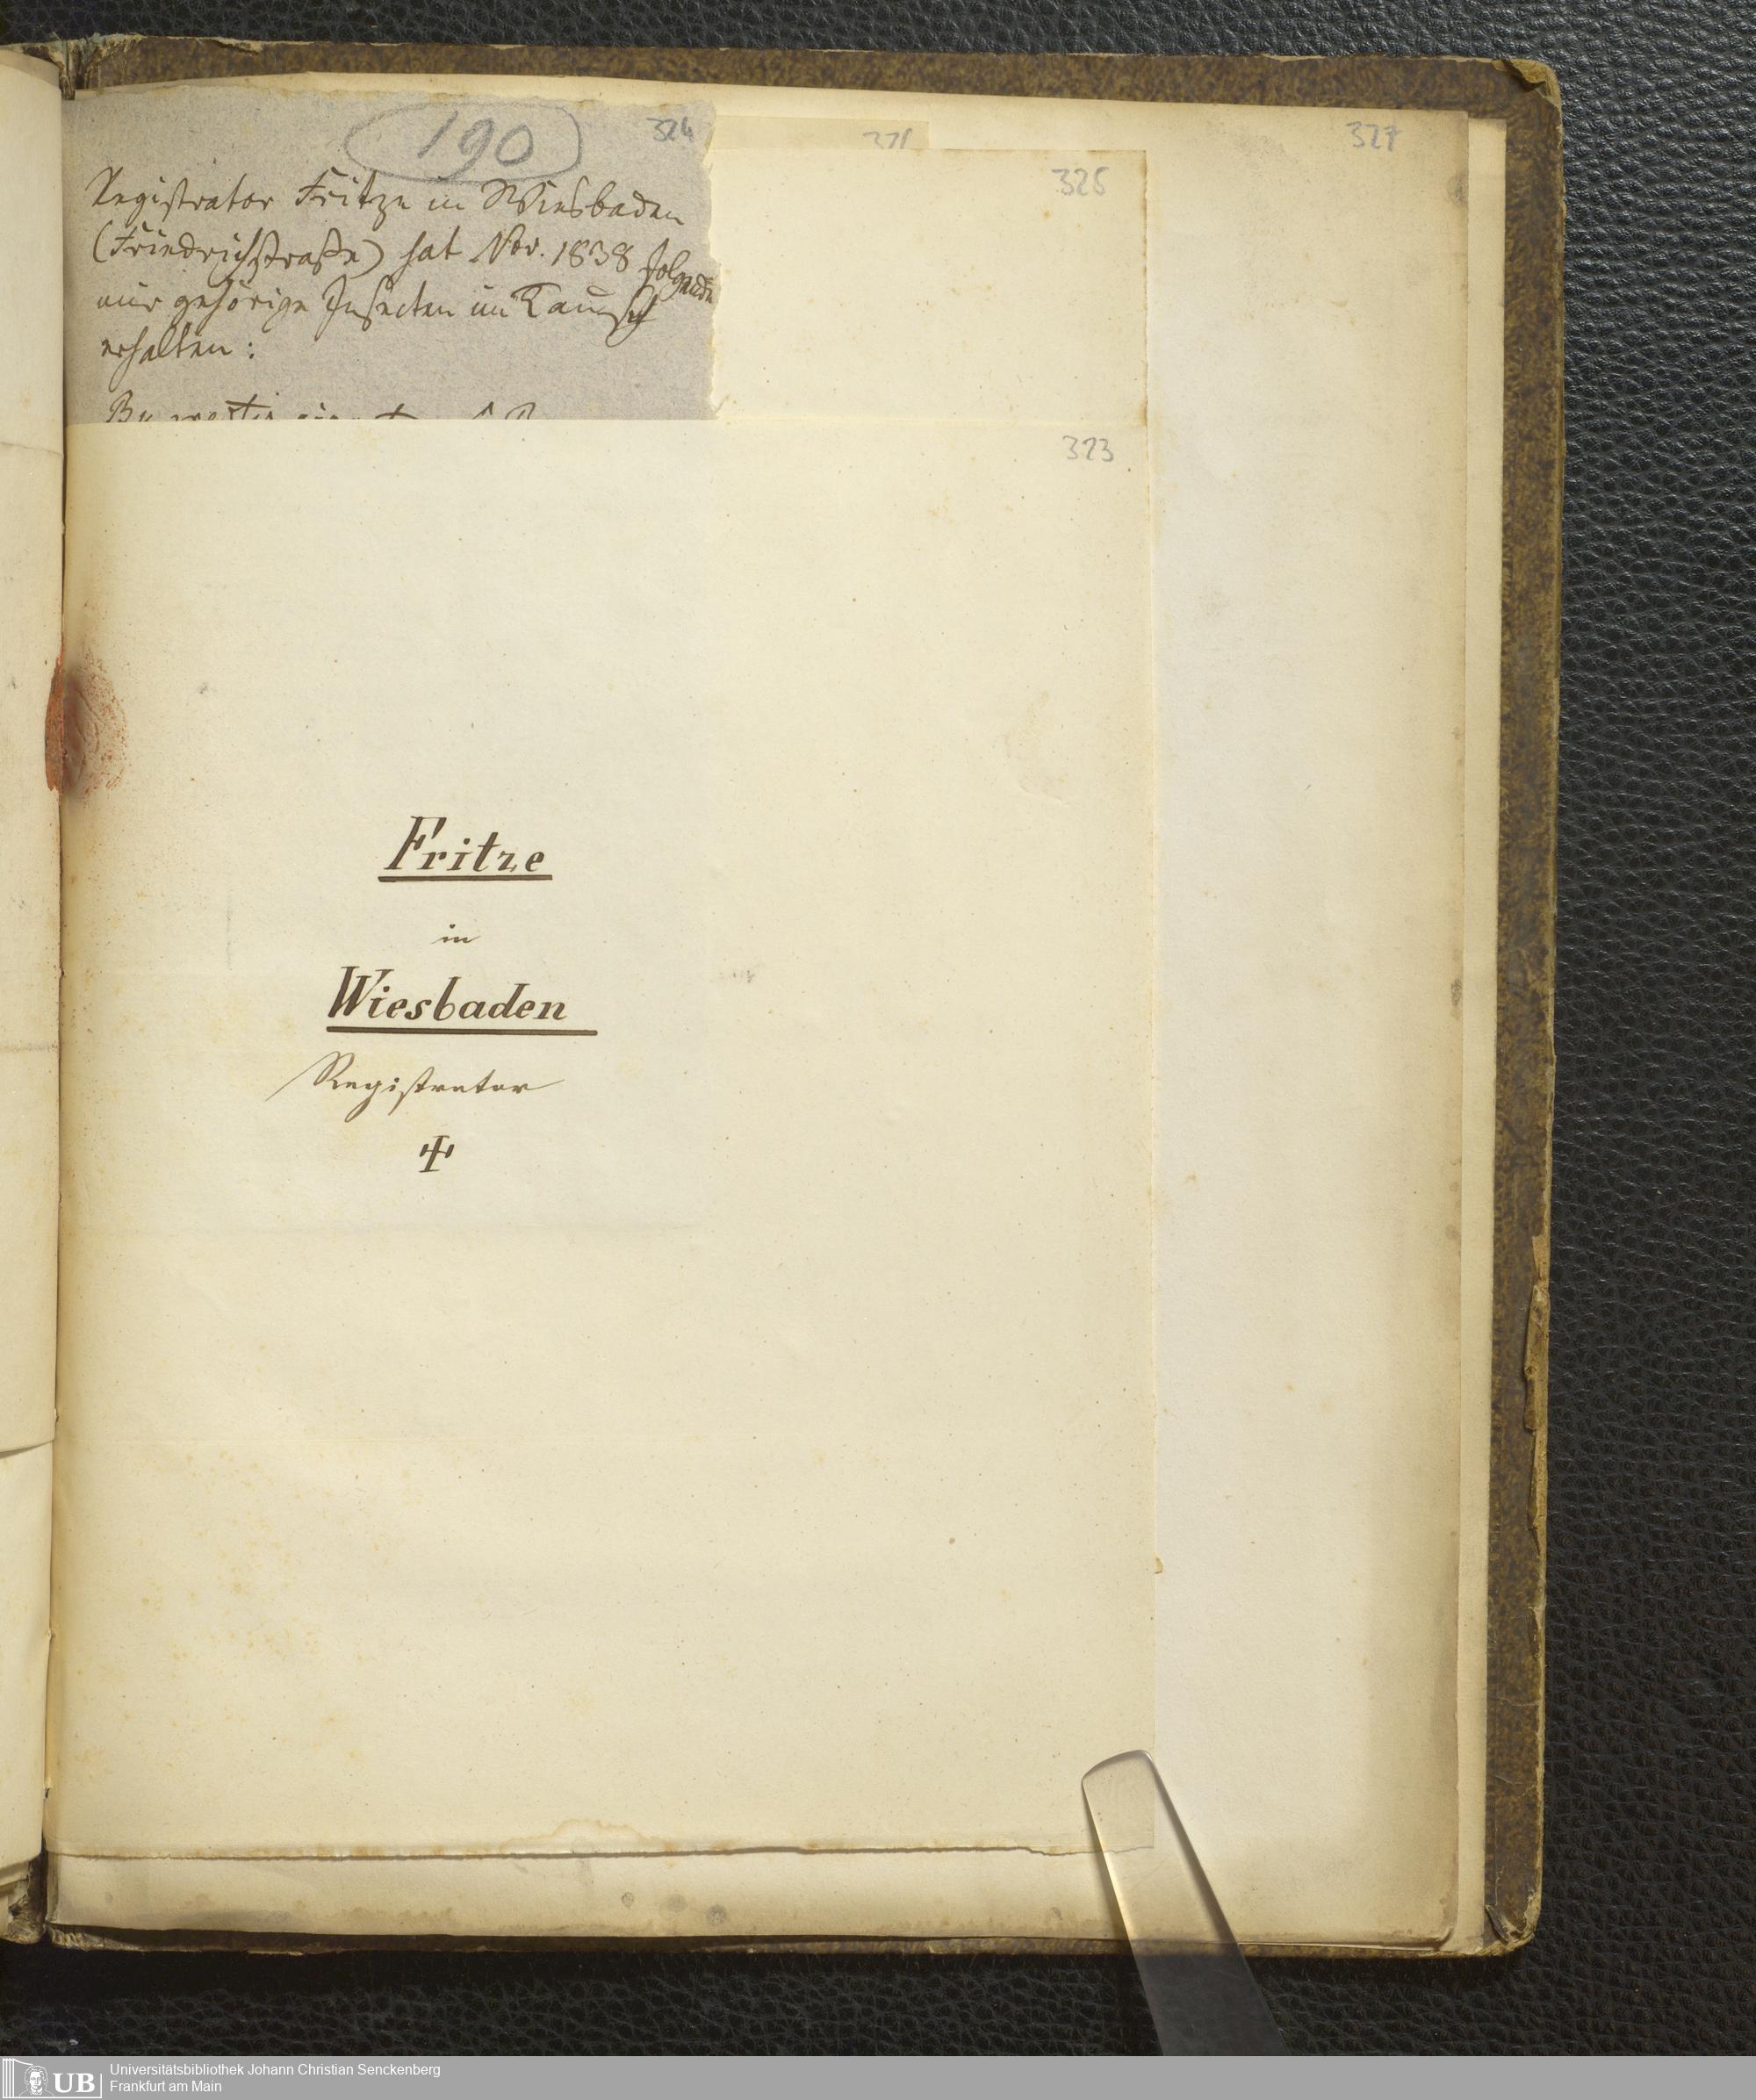 190
324
325
327
Registrator Fritze in Wiesbaden
(Friedrichstraße) hat Nov. 1838 folgende
mir gehörige Insecten im Tausch
erhalten:
323
Fritze
in
Wiesbaden
Registrator
✝
UB
Universitätsbibliothek Johann Christian Senckenberg
Frankfurt am Main